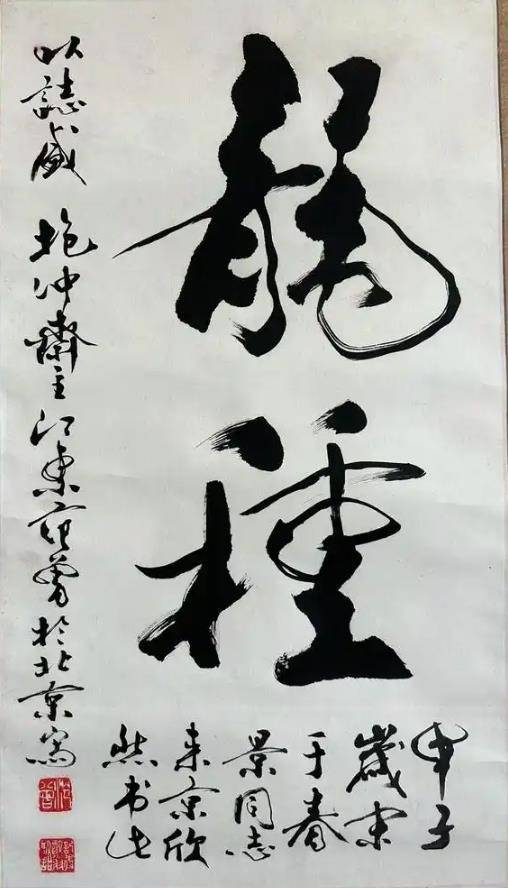 龍種
甲子
歲末
于春
景同志
来京欣
然书此
以誌感 抱冲齋主江東范曾於北京寓